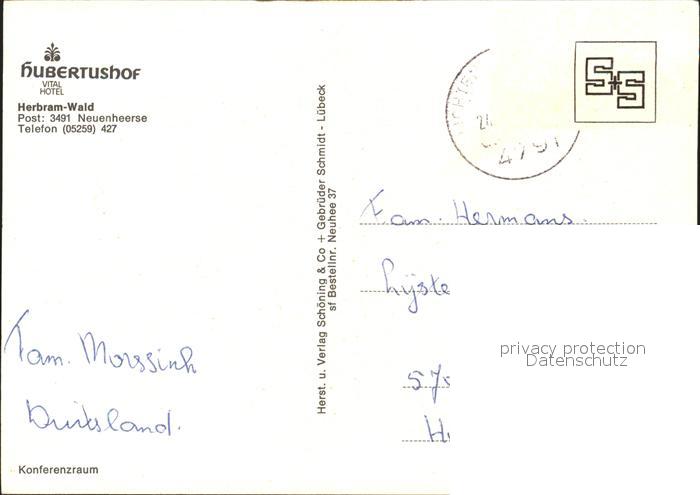 HUBERTUSHOF
VITAL
HOTEL
Herbram-Wald
Post: 3491 Neuenheerse
Telefon (05259) 427
Fam. Morssink
Duitsland.
Konferenzraum
Herst. u. Verlag Schöning & Co + Gebrüder Schmidt - Lübeck
sf Bestellnr. Neuhee 37
24
4791
S+S
Fam. Hermans.
Lijste
57
H
privacy protection
Datenschutz